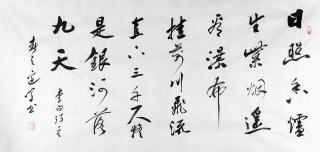 日照香爐
生紫烟遥
看瀑布
挂前川飛流
直下三千尺疑
是銀河落
九天
李白詩